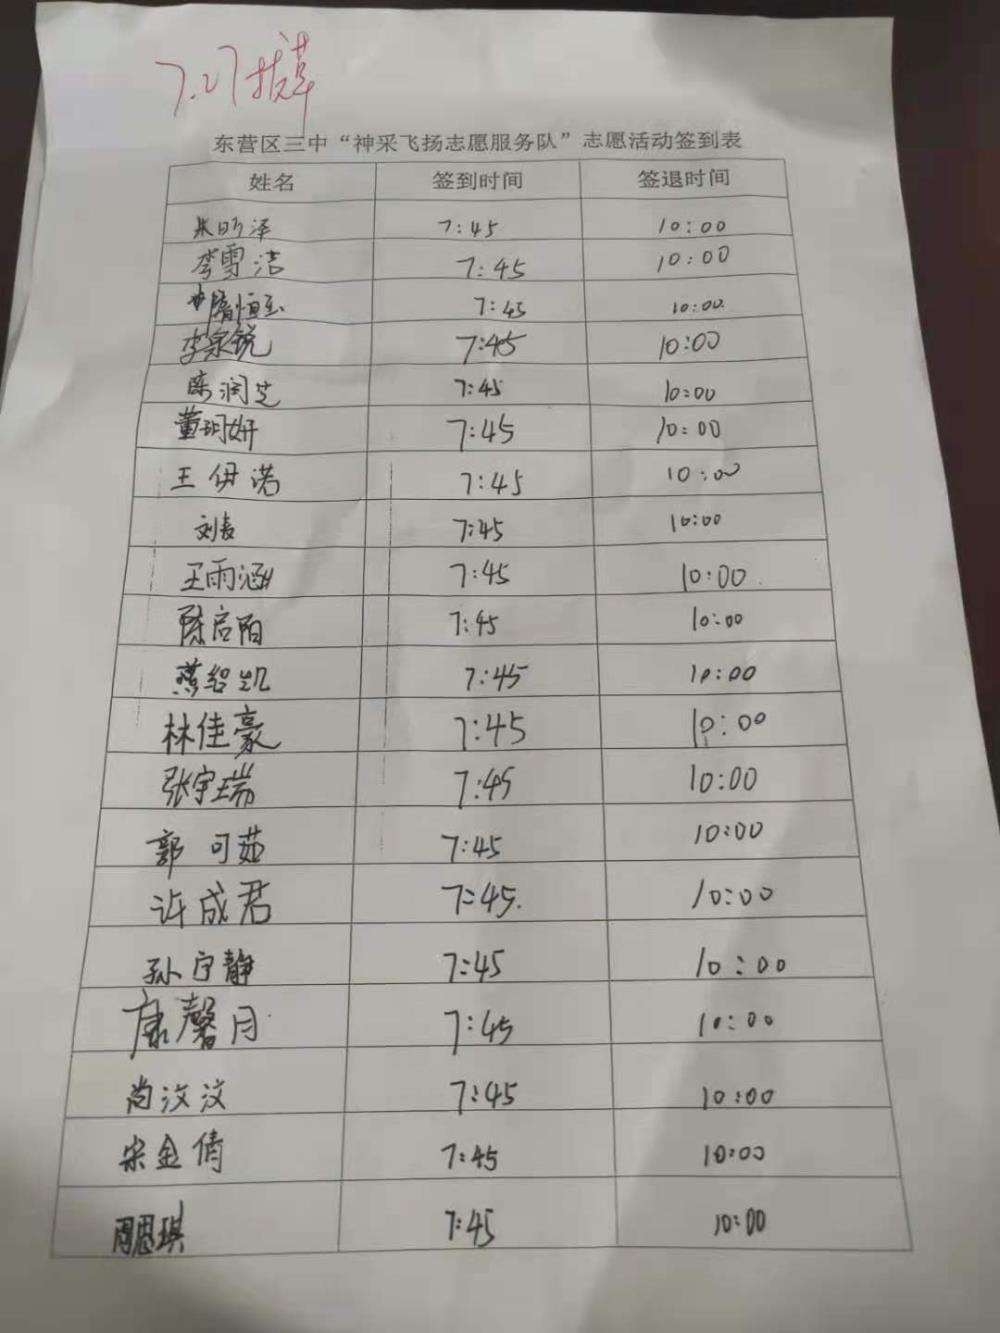 7.27拔草
东营区三中“神采飞扬志愿服务队”志愿活动签到表
姓名 签到时间 签退时间
朱昕泽 7:45 10:00
李雪洁 7:45 10:00
7:45 10:00
李宗锐 7:45 10:00
陈润芝 7:45 10:00
董玥妍 7:45 10:00
王伊诺 7:45 10:00
刘 7:45 10:00
王雨涵 7:45 10:00
陈启阳 7:45 10:00
燕绍凯 7:45 10:00
林佳豪 7:45 10:00
张宇瑞 7:45 10:00
郭可茹 7:45 10:00
许成君 7:45. 10:00
孙宁静 7:45 10:00
康馨月 7:45 10:00
尚汶汶 7:45 10:00
宋金倩 7:45 10:00
周恩琪 7:45 10:00